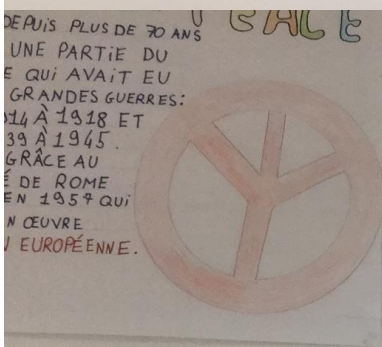 PEACE
DEPUIS PLUS DE 70 ANS
UNE PARTIE DU
E QUI AVAIT EU
GRANDES GUERRES:
14 À 1918 ET
39 À 1945.
GRÂCE AU
É DE ROME
EN 1957 QUI
N ŒUVRE
EUROPÉENNE.